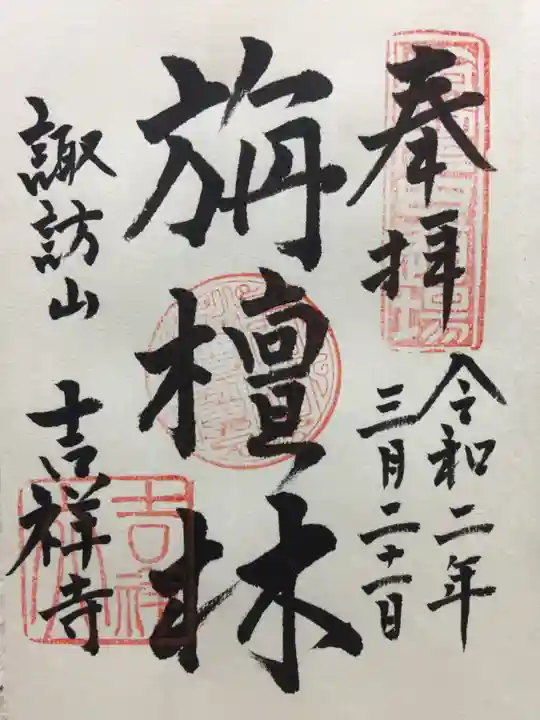 奉拝
令和二年
三月二十一日
旃檀林
諏訪山　吉祥寺
吉祥